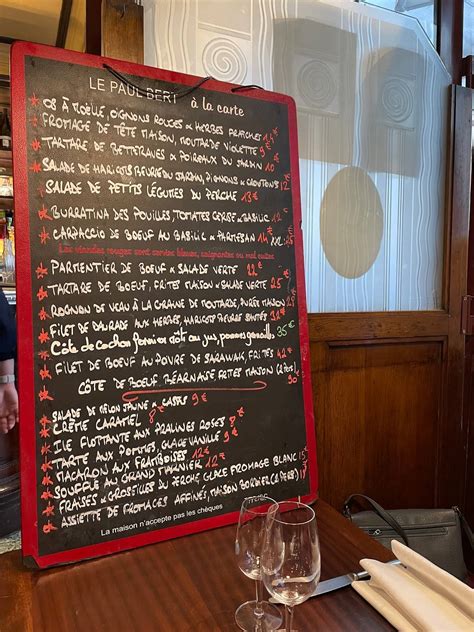 LE PAUL BERT à la carte
OS À MOËLLE, OIGNONS ROUGES & HERBES FRAICHES 14
FROMAGE DE TÊTE MAISON, MOUTARDE VIOLETTE 9€
TARTARE DE BETTERAVES & POIREAUX DU JARDIN 10
SALADE DE HARICOTS BEURRE DU JARDIN, PIGNONS & CROUTONS 12€
SALADE DE PETITS LÉGUMES DU PERCHE 13€
BURRATINA DES POUILLES, TOMATES CERISE & BASILIC 12€
CARPACCIO DE BOEUF AU BASILIC & PARMESAN 14€ XXL: 25€
Les viandes rouges sont servies bleues, saignantes ou mal cuites
PARMENTIER DE BOEUF & SALADE VERTE 22€
TARTARE DE BOEUF, FRITES MAISON & SALADE VERTE 25€
ROGNON DE VEAU À LA GRAINE DE MOUTARDE, PURÉE MAISON
FILET DE DAURADE AUX HERBES, HARICOTS BEURRE
Côte de cochon fermier rôti au jus, pommes grenailles 35€
FILET DE BOEUF AU POIVRE DE SARAWAK, FRITES 42€
CÔTE DE BOEUF BÉARNAISE FRITES MAISON (2 PERS) 90€
SALADE DE MELON JAUNE & CASSIS 9€
CRÈME CARAMEL 8€
ILE FLOTTANTE AUX PRALINES ROSES 8€
TARTE AUX POMMES, GLACE VANILLE 9€
MACARON AUX FRAMBOISES 12€
SOUFFLÉ AU GRAND MARNIER 12€
FRAISES & GROSEILLES DU PERCHE, GLACE FROMAGE BLANC 15
ASSIETTE DE FROMAGES AFFINÉS, MAISON BORDIER (2 PERS) 15
La maison n'accepte pas les chèques